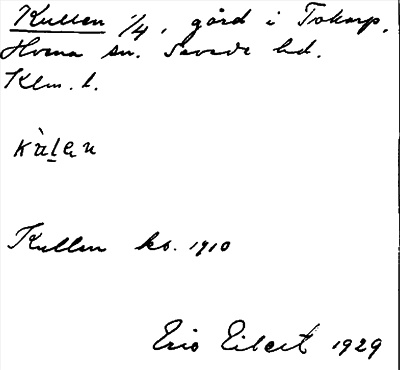 Kullen 1/4, gård i Tokarp,
Hvena sn. Sevede hd.
Klm. l.
kùlen
Kullen ks. 1910
Eric Eilert 1929